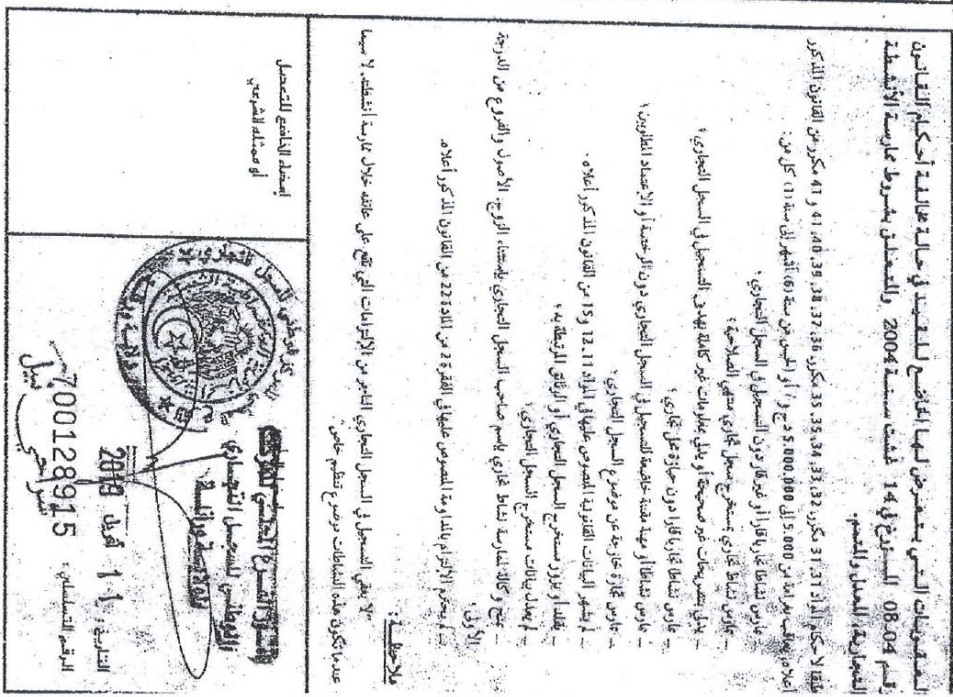 العقوبات التي يتعرض لها الخاضع للتقييد في حالة مخالفة أحكام القانون
رقم 08.04 المؤرخ في 14 غشت سنة 2004 والمتعلق بشروط ممارسة الأنشطة
التجارية، المعدل والمتمم.
طبقا لأحكام المواد 31، 31 مكرر، 32، 33، 34، 35، 35 مكرر، 36، 37، 38، 39، 40، 41 و 41 مكرر من القانون المذكور
أعلاه، يعاقب بغرامة من 5.000 إلى 5.000.000 دج و/أو الحبس من ستة (6) أشهر إلى سنة (1) كل من:
- مارس نشاطا تجاريا قارا أو غير قار دون التسجيل في السجل التجاري،
- مارس نشاط تجاري بمستخرج سجل تجاري منتهي الصلاحية،
- يدلي بتصريحات غير صحيحة أو يدلي بمعلومات غير كاملة بهدف التسجيل في السجل التجاري،
- مارس نشاطا تجاريا قارا دون حيازة محل تجاري،
- مارس نشاطا أو مهنة مقننة خاضعة للتسجيل في السجل التجاري دون الرخصة أو الاعتماد المطلوبين،
- مارس تجارة خارجة عن موضوع السجل التجاري،
- لم يشهر البيانات القانونية المنصوص عليها في المواد 11، 12 و 15 من القانون المذكور أعلاه.
- يقلد أو يزور مستخرج السجل التجاري أو الوثائق المرتبطة به،
- لم يعدل بيانات مستخرج السجل التجاري،
- يمنح وكالة لممارسة نشاط تجاري باسم صاحب السجل التجاري باستثناء الزوج، الأصول والفروع من الدرجة
الأولى،
- لم يحترم الالتزام بالمداومة المنصوص عليها في الفقرة 2 من المادة 22 من القانون المذكور أعلاه.
ملاحظة:
"لا يعفي التسجيل في السجل التجاري التاجر من الالتزامات التي تقع على عاتقه خلال ممارسة أنشطته، لا سيما
عندما تكون هذه النشاطات موضوع تنظيم خاص"
إمضاء الخاضع للتسجيل
أو ممثله الشرعي
المركز الوطني للسجل التجاري
الفرع المحلي للمركز
الوطني للسجل التجاري
لولاية ورقلة
التاريخ: 11
2018
الرقم التسلسلي:
700128915
نبيل